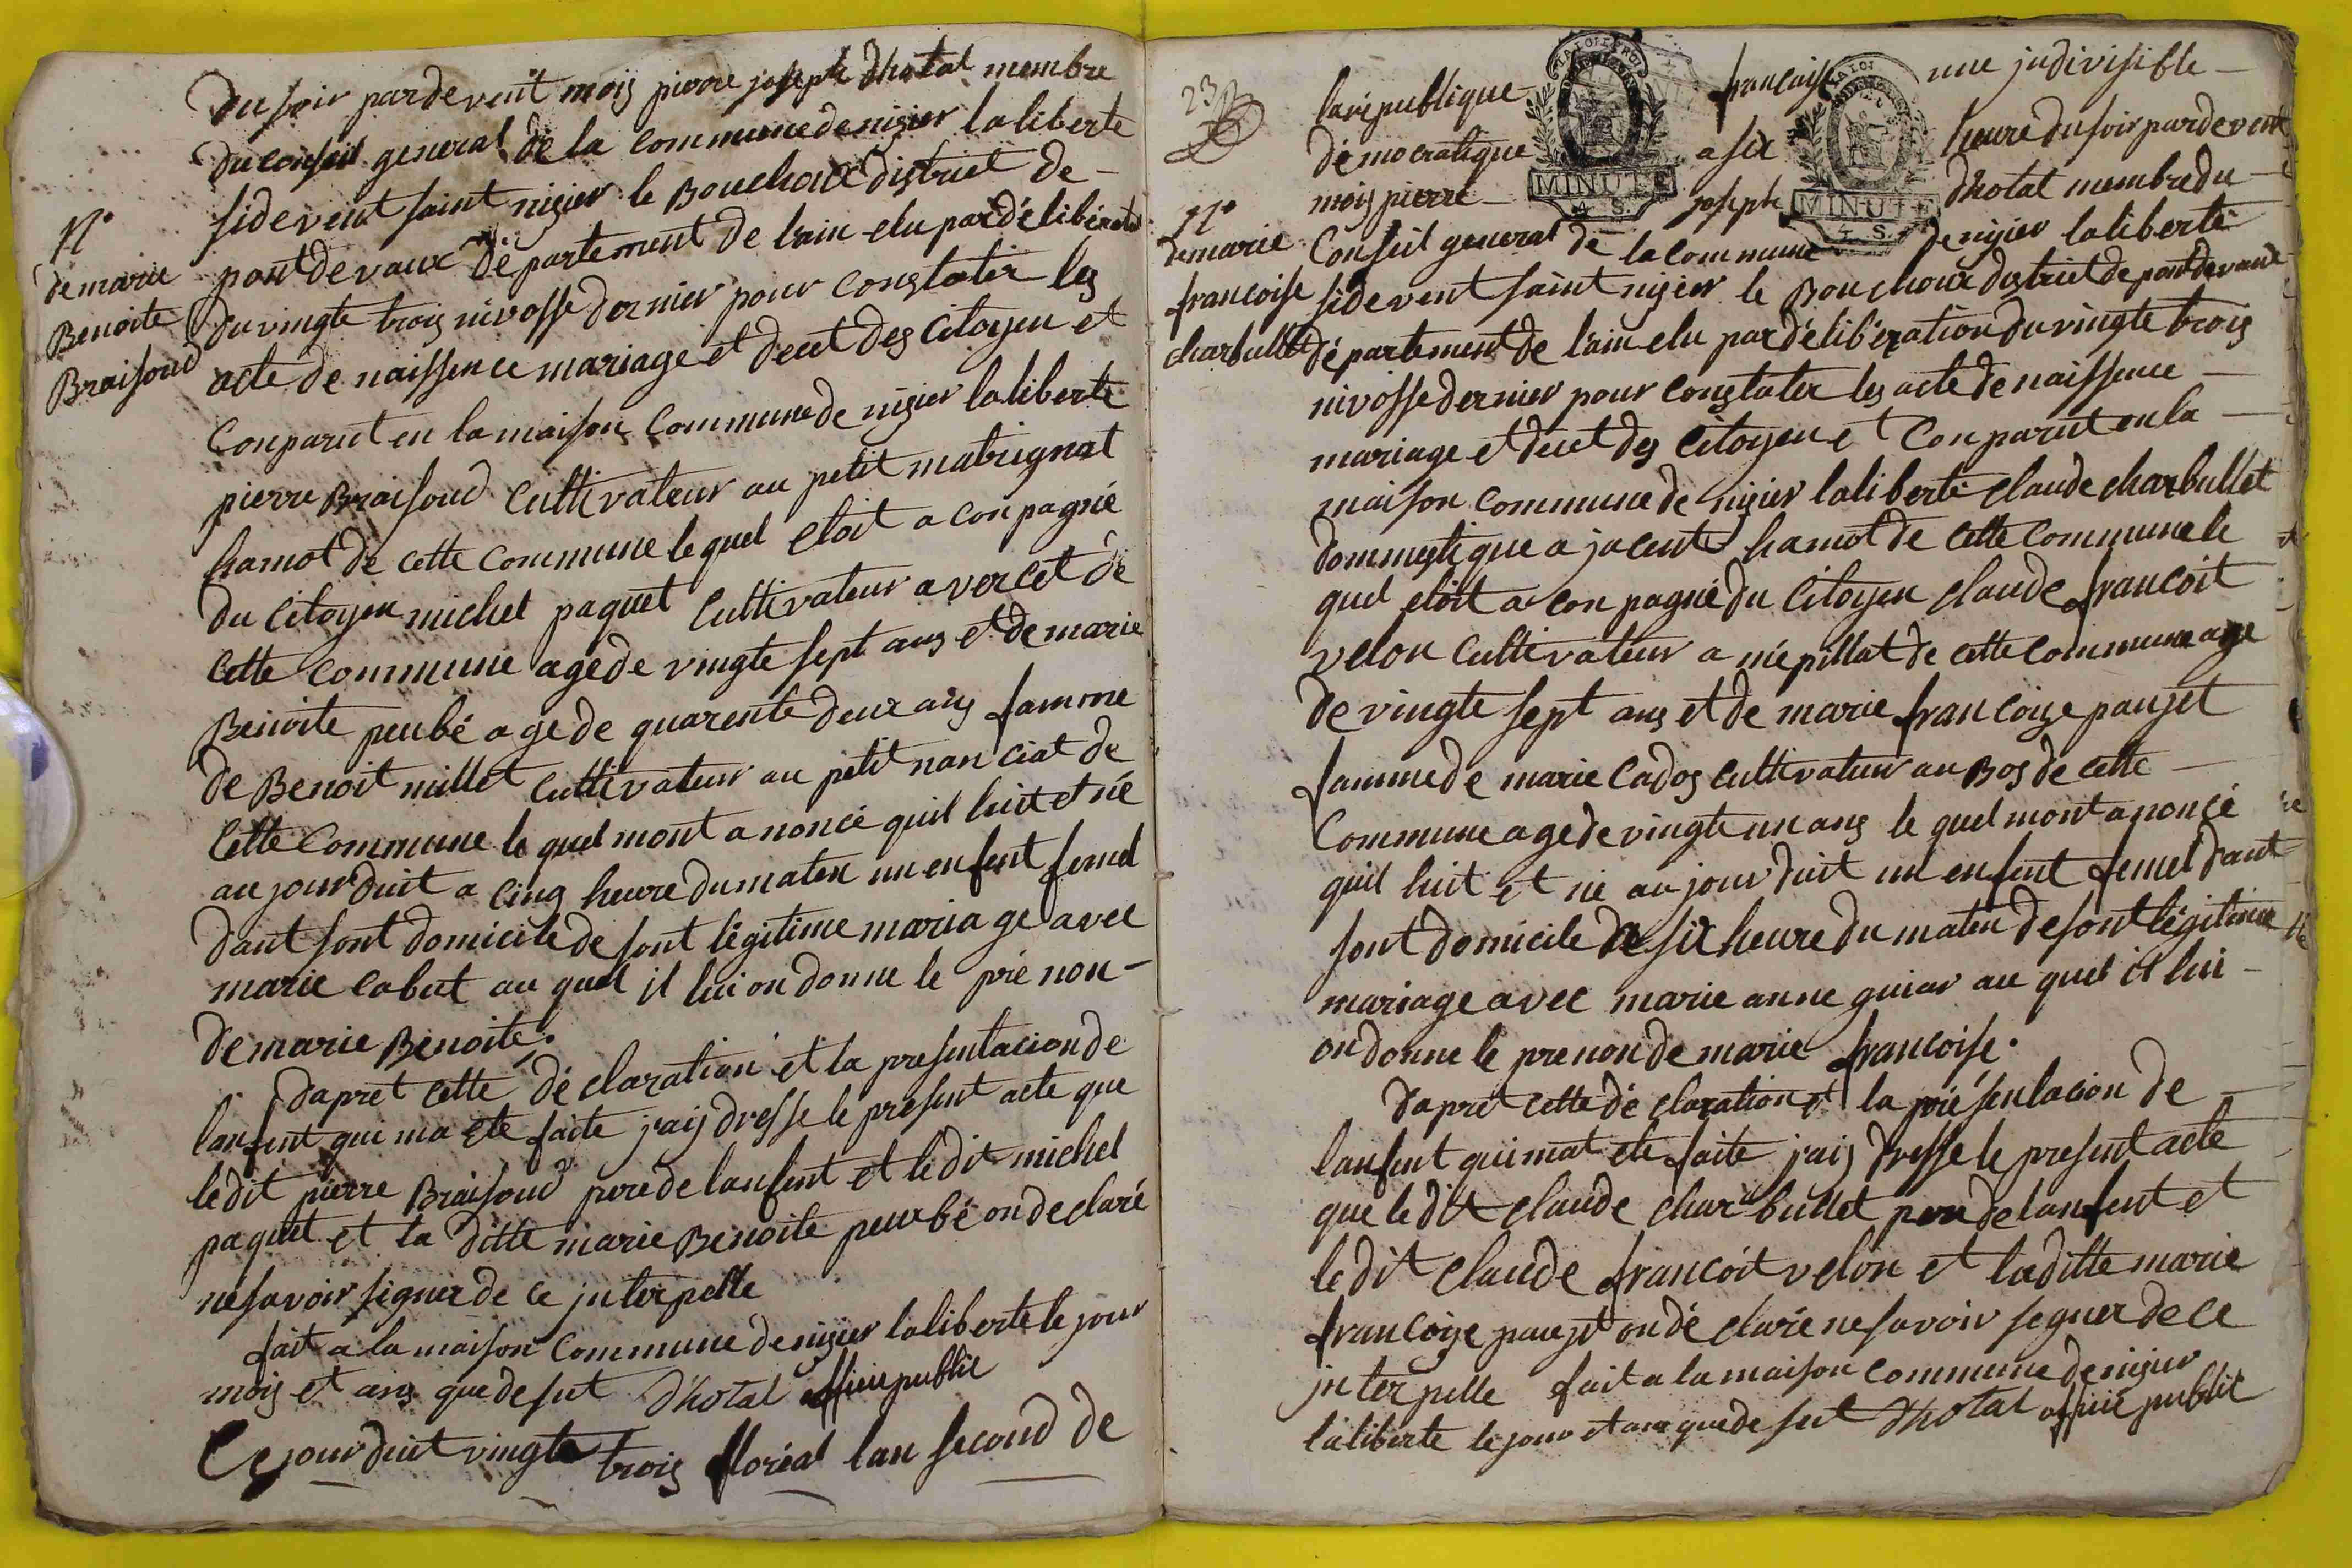 Du soir pardevent mois pierre joseph Dhotal membre
Du conseil general de la commune de nisier laliberte
sidevent saint nisier le Bouchoux District de
pontdevaux Département de lain elu par délibérat
Du vingte trois nivosse dernier pour constater les
acte de naissence mariage et decet des Citoyen et
Conparut en la maison Commune de nisier laliberte
pierre Braisoud Cultivateur au petit matrignat
hamot de cette commune le quel etoit a conpagnié
Du Citoyen michel paquet Cultivateur a vercet de
Cette Commune age de vingte sept ans et de marie
Benoite peubé age de quarente deux ans famme
de Benoit millet Cultivateur au petit nanciat de
Cette Commune le quel mont a noncé quil luit et né
au jour duit a cinq heure du maten un enfent femel
Dant sont domicile de sont légitime maria ge avec
marie cabut au quel il lui on donne le pré non
De marie Benoite.
Dapret cette déclaration et la presentacion de
lanfent qui ma ete faite jais dresse le present acte que
le dit pierre Braisoud pere de lanfent et le dit michel
paquet et la ditte marie Benoite peurbé on declaré
ne savoir signer de ce interpelle
fait a la maison Commune de nisier laliberte le jour
mois et ans que de sut Dhotal officie public
Ce jour duit vingte trois floréal lan second de
N°
de marie
Benoite
Braisoud
23
la république francaise une jndivisible
démocratique a six heure du soir pardevent
mois pierre joseph dhotal membre du
Conseil general de la commune de nisier laliberté
sidevent saint nisier le Bouchoux district de pontdevaux
département de lain elu par délibération du vingte trois
nivosse dernier pour constater les acte de naissence
mariage et decet des Citoyen et Conparut en la
maison commune de nisier laliberté claude charbullet
dommestique a jacent hamot de cette commune le
quel etoit a con pagnié du Citoyen claude francoit
velon Cultivateur a mépillat de cette commune age
de vingte sept ans et de marie francoise paujet
famme de marie Cados cultivateur au Bos de cette
Commune age de vingte un ans le quel mont a noncé
quil luit et né au jour duit un enfent femel dant
sont domicile a six heure du maten de sont légitime
mariage avec marie anne guiar au quel il lui
on donne le prenon de marie francoise.
Dapret cette déclaration et la présentacion de
lanfent qui mat ete faite jais dresse le present acte
que le dit claude charbullet pere de lanfent et
le dit claude francoit velon et la ditte marie
francoise paujet on déclaré ne savoir segner de ce
interpelle fait a la maison commune de nisier
laliberte le jour et ans que de sut Dhotal officié public
N°
de marie
francoise
charbullet
LA LOI
LA LOI
MINUTE
4 S.
MINUTE
4 S.